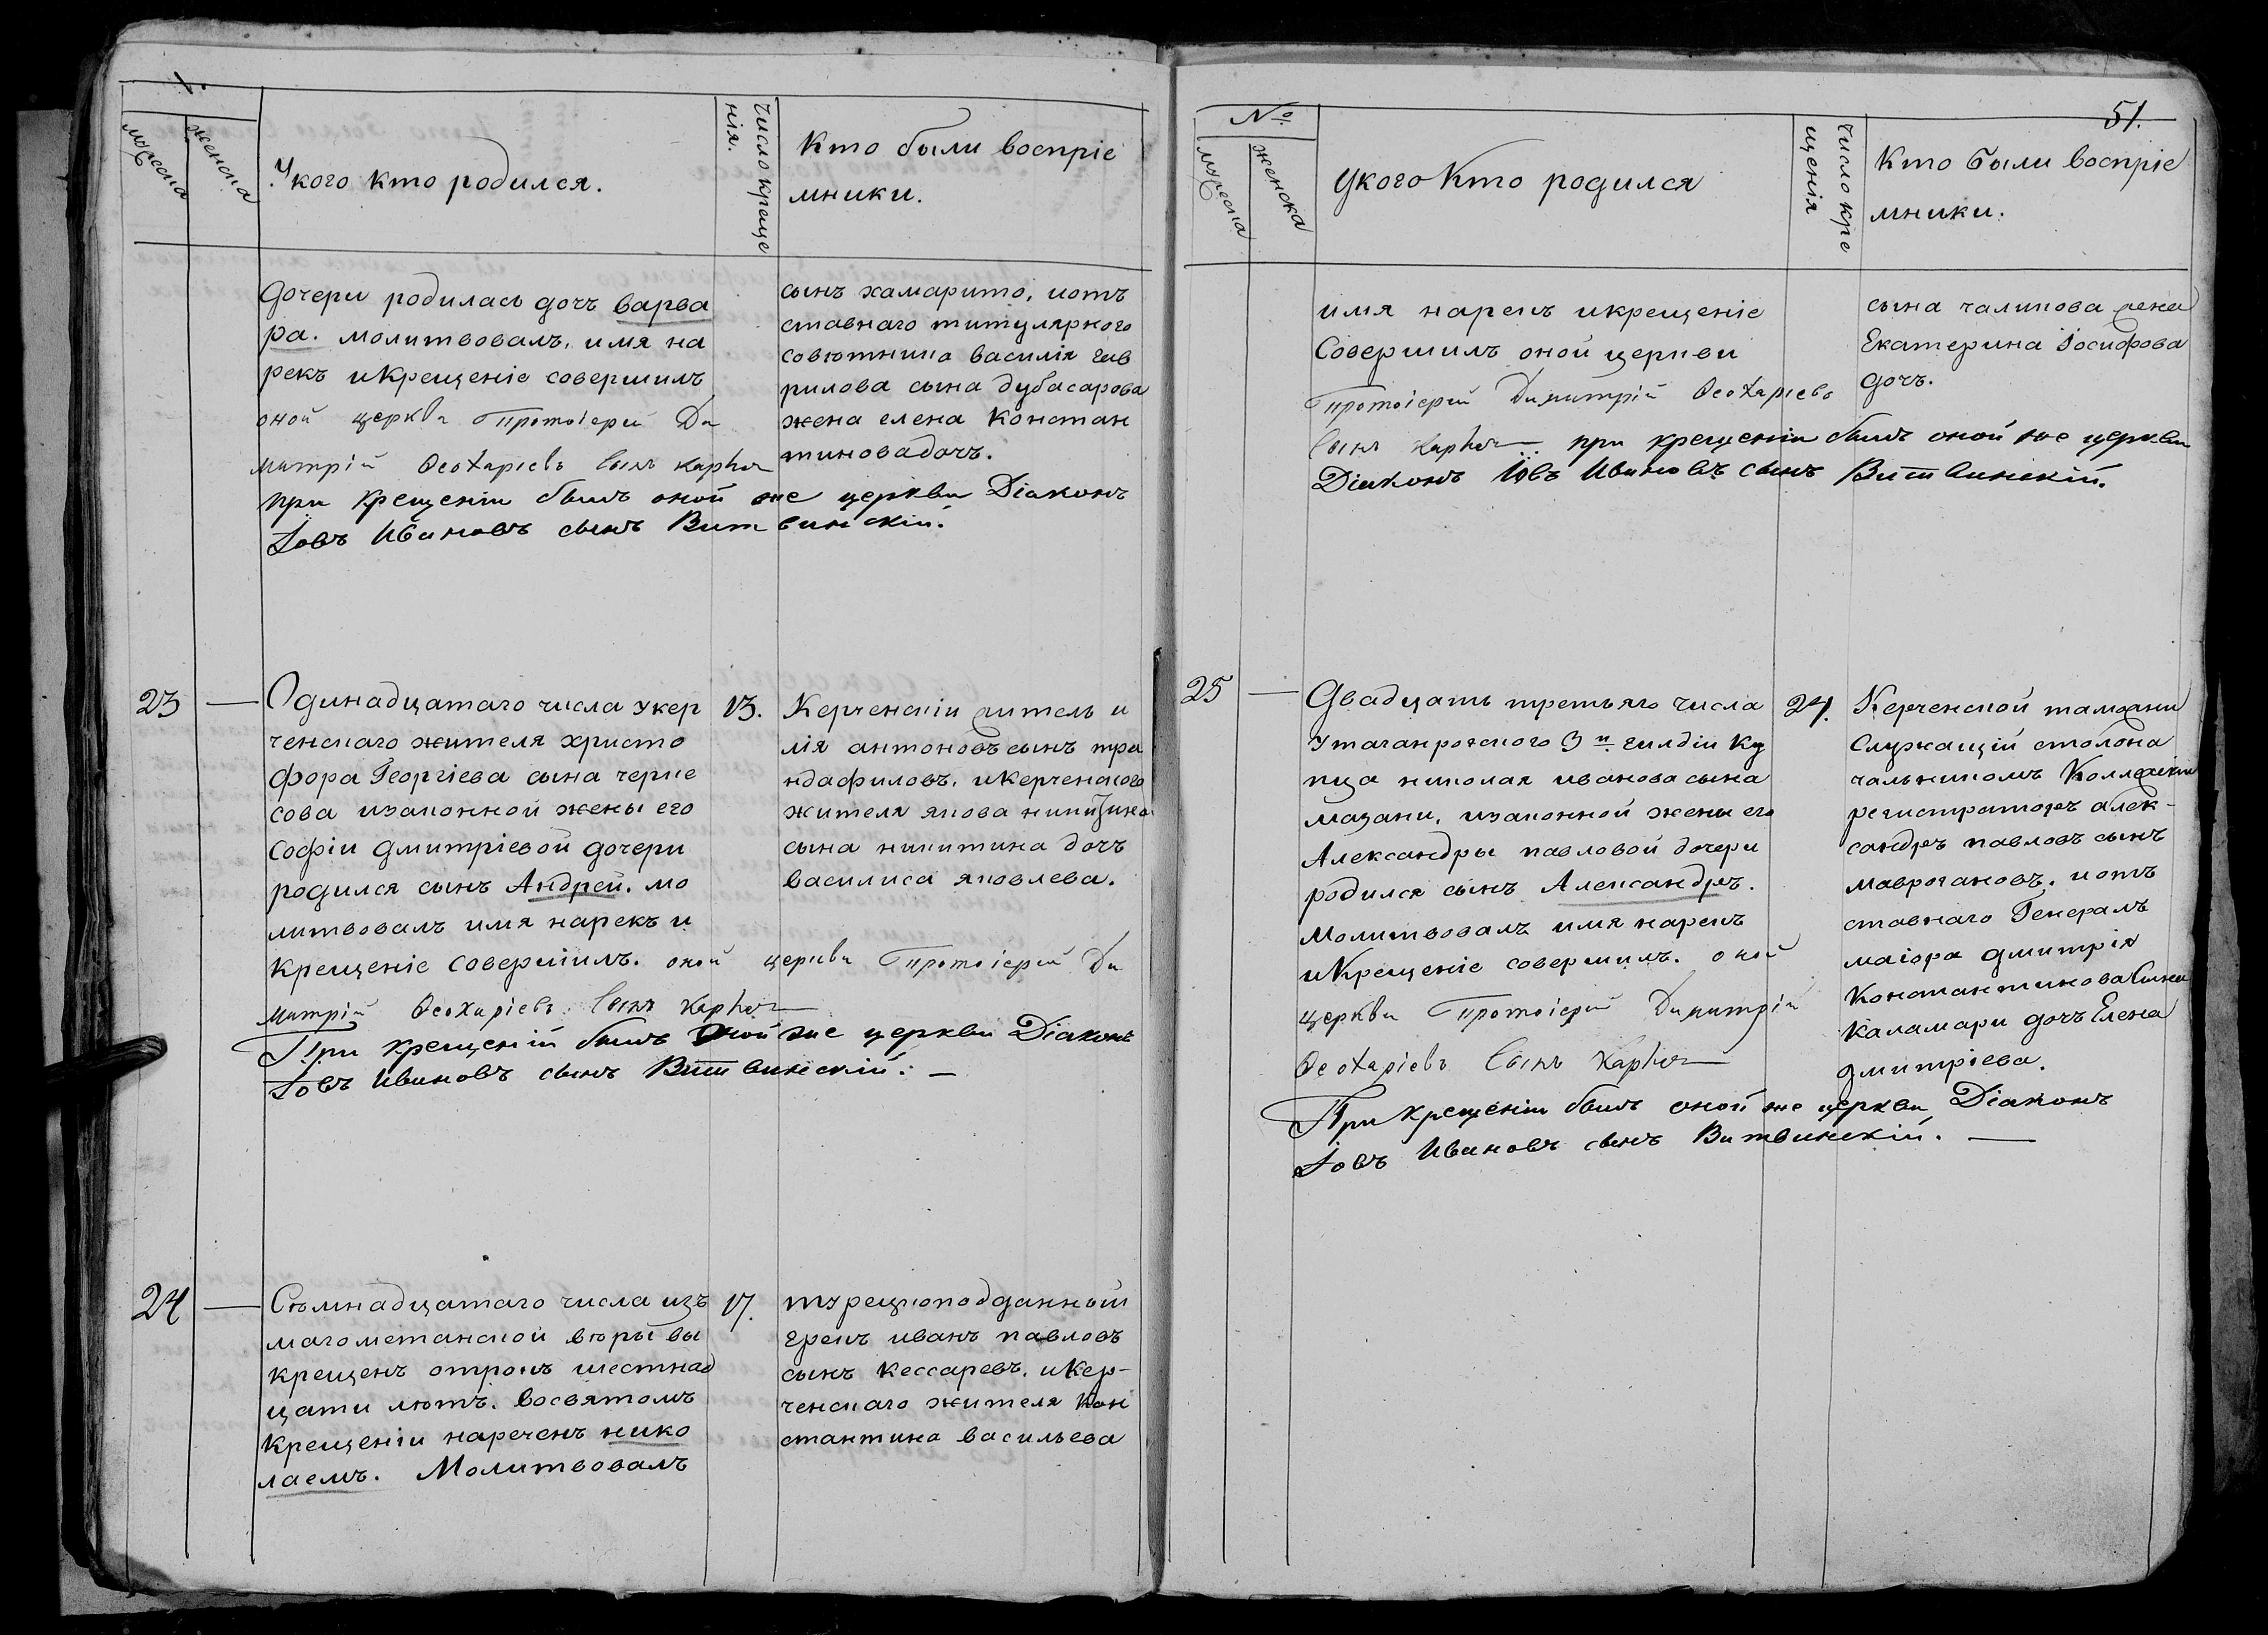 мужеска
женска
Укого кто родился.
Число креще
нія.
Кто были воспріе
мники.
дочери родилась дочъ варва
ра. молитвовалъ, имя на
рекъ икрещеніе совершилъ
оной церкви Протоіерей Ди
митрій Ѳеохаріевъ сынъ
при крещеніи былъ оной же церкви Діаконъ
Іовъ Ивановъ сынъ Витвинскій.
сынъ хамарито, иотъ
ставнаго титулярного
совѣтника василія гав
рилова сына дубасарова
жена елена констан
тиновадочъ.
23 — Одинадцатаго числа укер
ченскаго жителя христо
фора Георгіева сына черке
сова изаконной жены его
Софіи дмитріевой дочери
родился сынъ Андрей. мо
литвовалъ имя нарекъ и
крещеніе совершилъ. оной церкви Протоіерей Ди
митрій Ѳеохаріевъ сынъ
При крещеніи былъ оной же церкви Діаконъ
Іовъ Ивановъ сынъ Витвинскій. —
13.
Керченскій житель и
лія антоновъ сынъ тра
ндафиловъ, икерченского
жителя якова
сына никитина дочъ
василиса яковлева.
24 — Сѣмнадцатаго числа изъ
магометанской вѣры вы
крещенъ отрокъ шестнад
цати лѣтъ. восвятомъ
крещеніи нареченъ нико
лаемъ. Молитвовалъ
17.
турецкоподданный
грекъ иванъ павловъ
сынъ кессаревъ. икер-
ченскаго жителя кон
стантина васильева
51.
№
мужеска
женска
укого кто родился
Число кре
щенія
Кто были воспріе
мники.
имя нарекъ икрещеніе
Совершилъ оной церкви
Протоіерей Димитрій Ѳеохаріевъ
сынъ при крещеніи былъ оной же церкви
Діаконъ Іовъ Ивановъ сынъ Витвинскій.
сына чаликова жена
Екатерина Іосифова
дочъ.
25 — Двадцать третьяго числа
утаганрогского 3й гилдіи ку
пца николая иванова сына
мазаки, изаконной жены его
Александры павловой дочери
родился сынъ Александръ.
Молитвовалъ имя нарекъ
икрещеніе совершилъ. оной
церкви Протоіерей Димитрій
Ѳеохаріевъ сынъ
При крещеніи былъ оной же церкви Діаконъ
Іовъ Ивановъ сынъ Витвинскій. —
24.
Керченской таможни
Служащій столона
чальникомъ
регистраторъ алек-
сандръ павловъ сынъ
маврогановъ. иотъ
ставнаго Генералъ
маіора дмитрія
Константинова Сына
Каламари дочъ Елена
дмитріева.